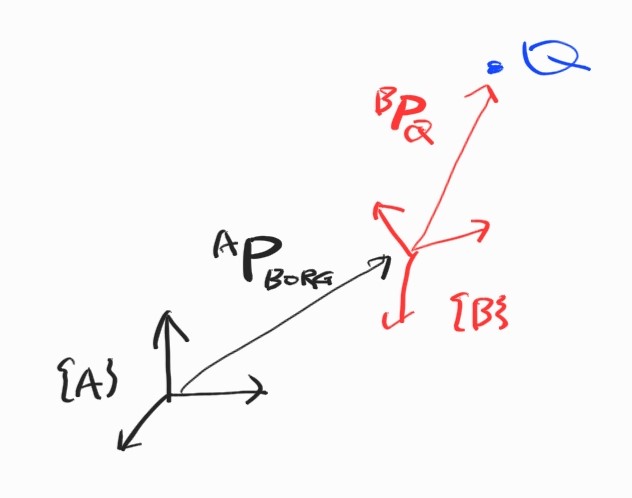 Q
ᴮP_Q
ᴬP_BORG
{B}
{A}